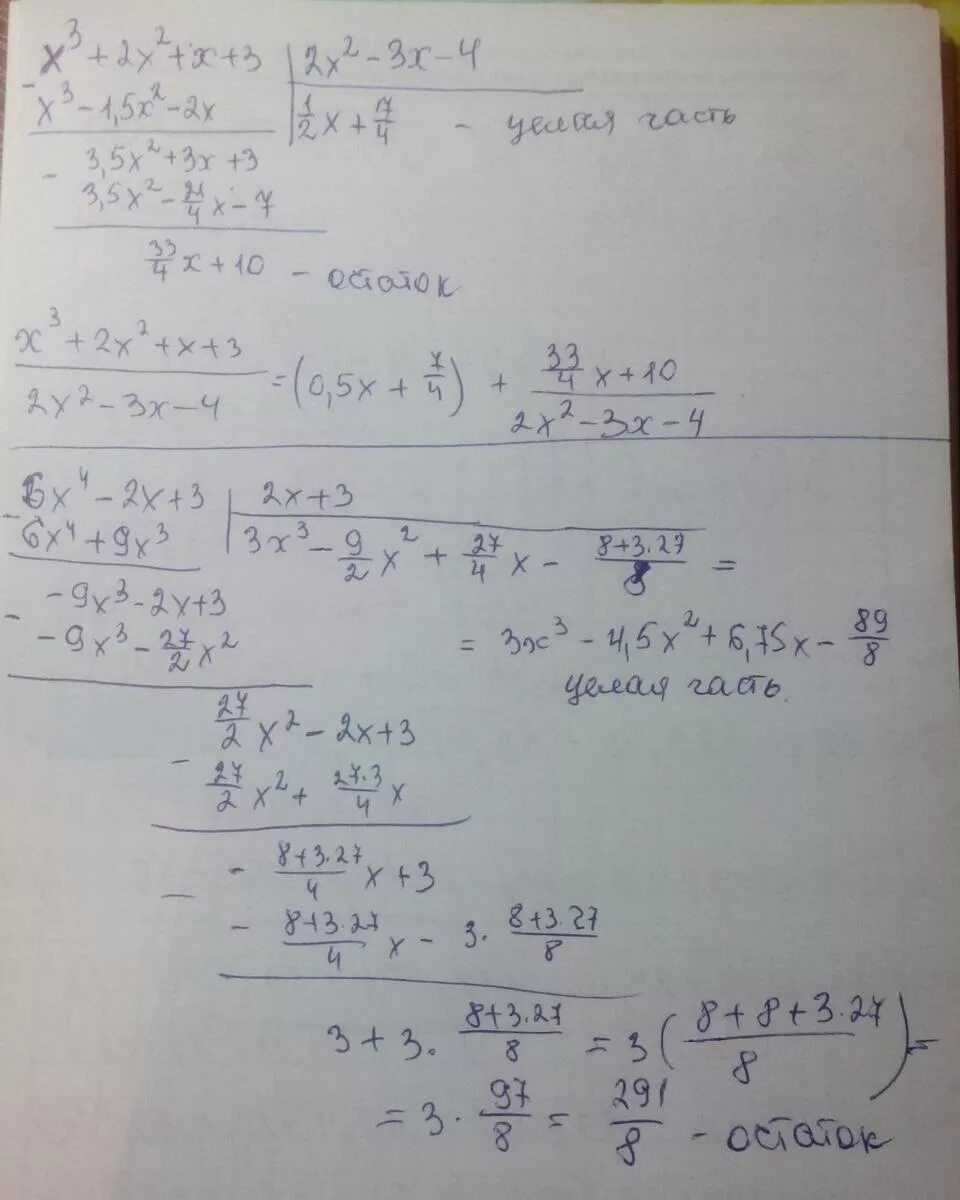 x³ + 2x² + x + 3 | 2x² - 3x - 4
- x³ - 1,5x² - 2x | 1/2 x + 7/4 - целая часть
3,5x² + 3x + 3
- 3,5x² - 21/4 x - 7
33/4 x + 10 - остаток
(x³ + 2x² + x + 3)/(2x² - 3x - 4) = (0,5x + 7/4) + (33/4 x + 10)/(2x² - 3x - 4)
6x⁴ - 2x + 3 | 2x + 3
- 6x⁴ + 9x³ | 3x³ - 9/2 x² + 27/4 x - (8+3·27)/8 =
-9x³ - 2x + 3
- -9x³ - 27/2 x² = 3x³ - 4,5x² + 6,75x - 89/8
целая часть.
27/2 x² - 2x + 3
- 27/2 x² + 27·3/4 x
- (8+3·27)/4 x + 3
- - (8+3·27)/4 x - 3· (8+3·27)/8
3 + 3· (8+3·27)/8 = 3 ((8+8+3·27)/8) =
= 3 · 97/8 = 291/8 - остаток